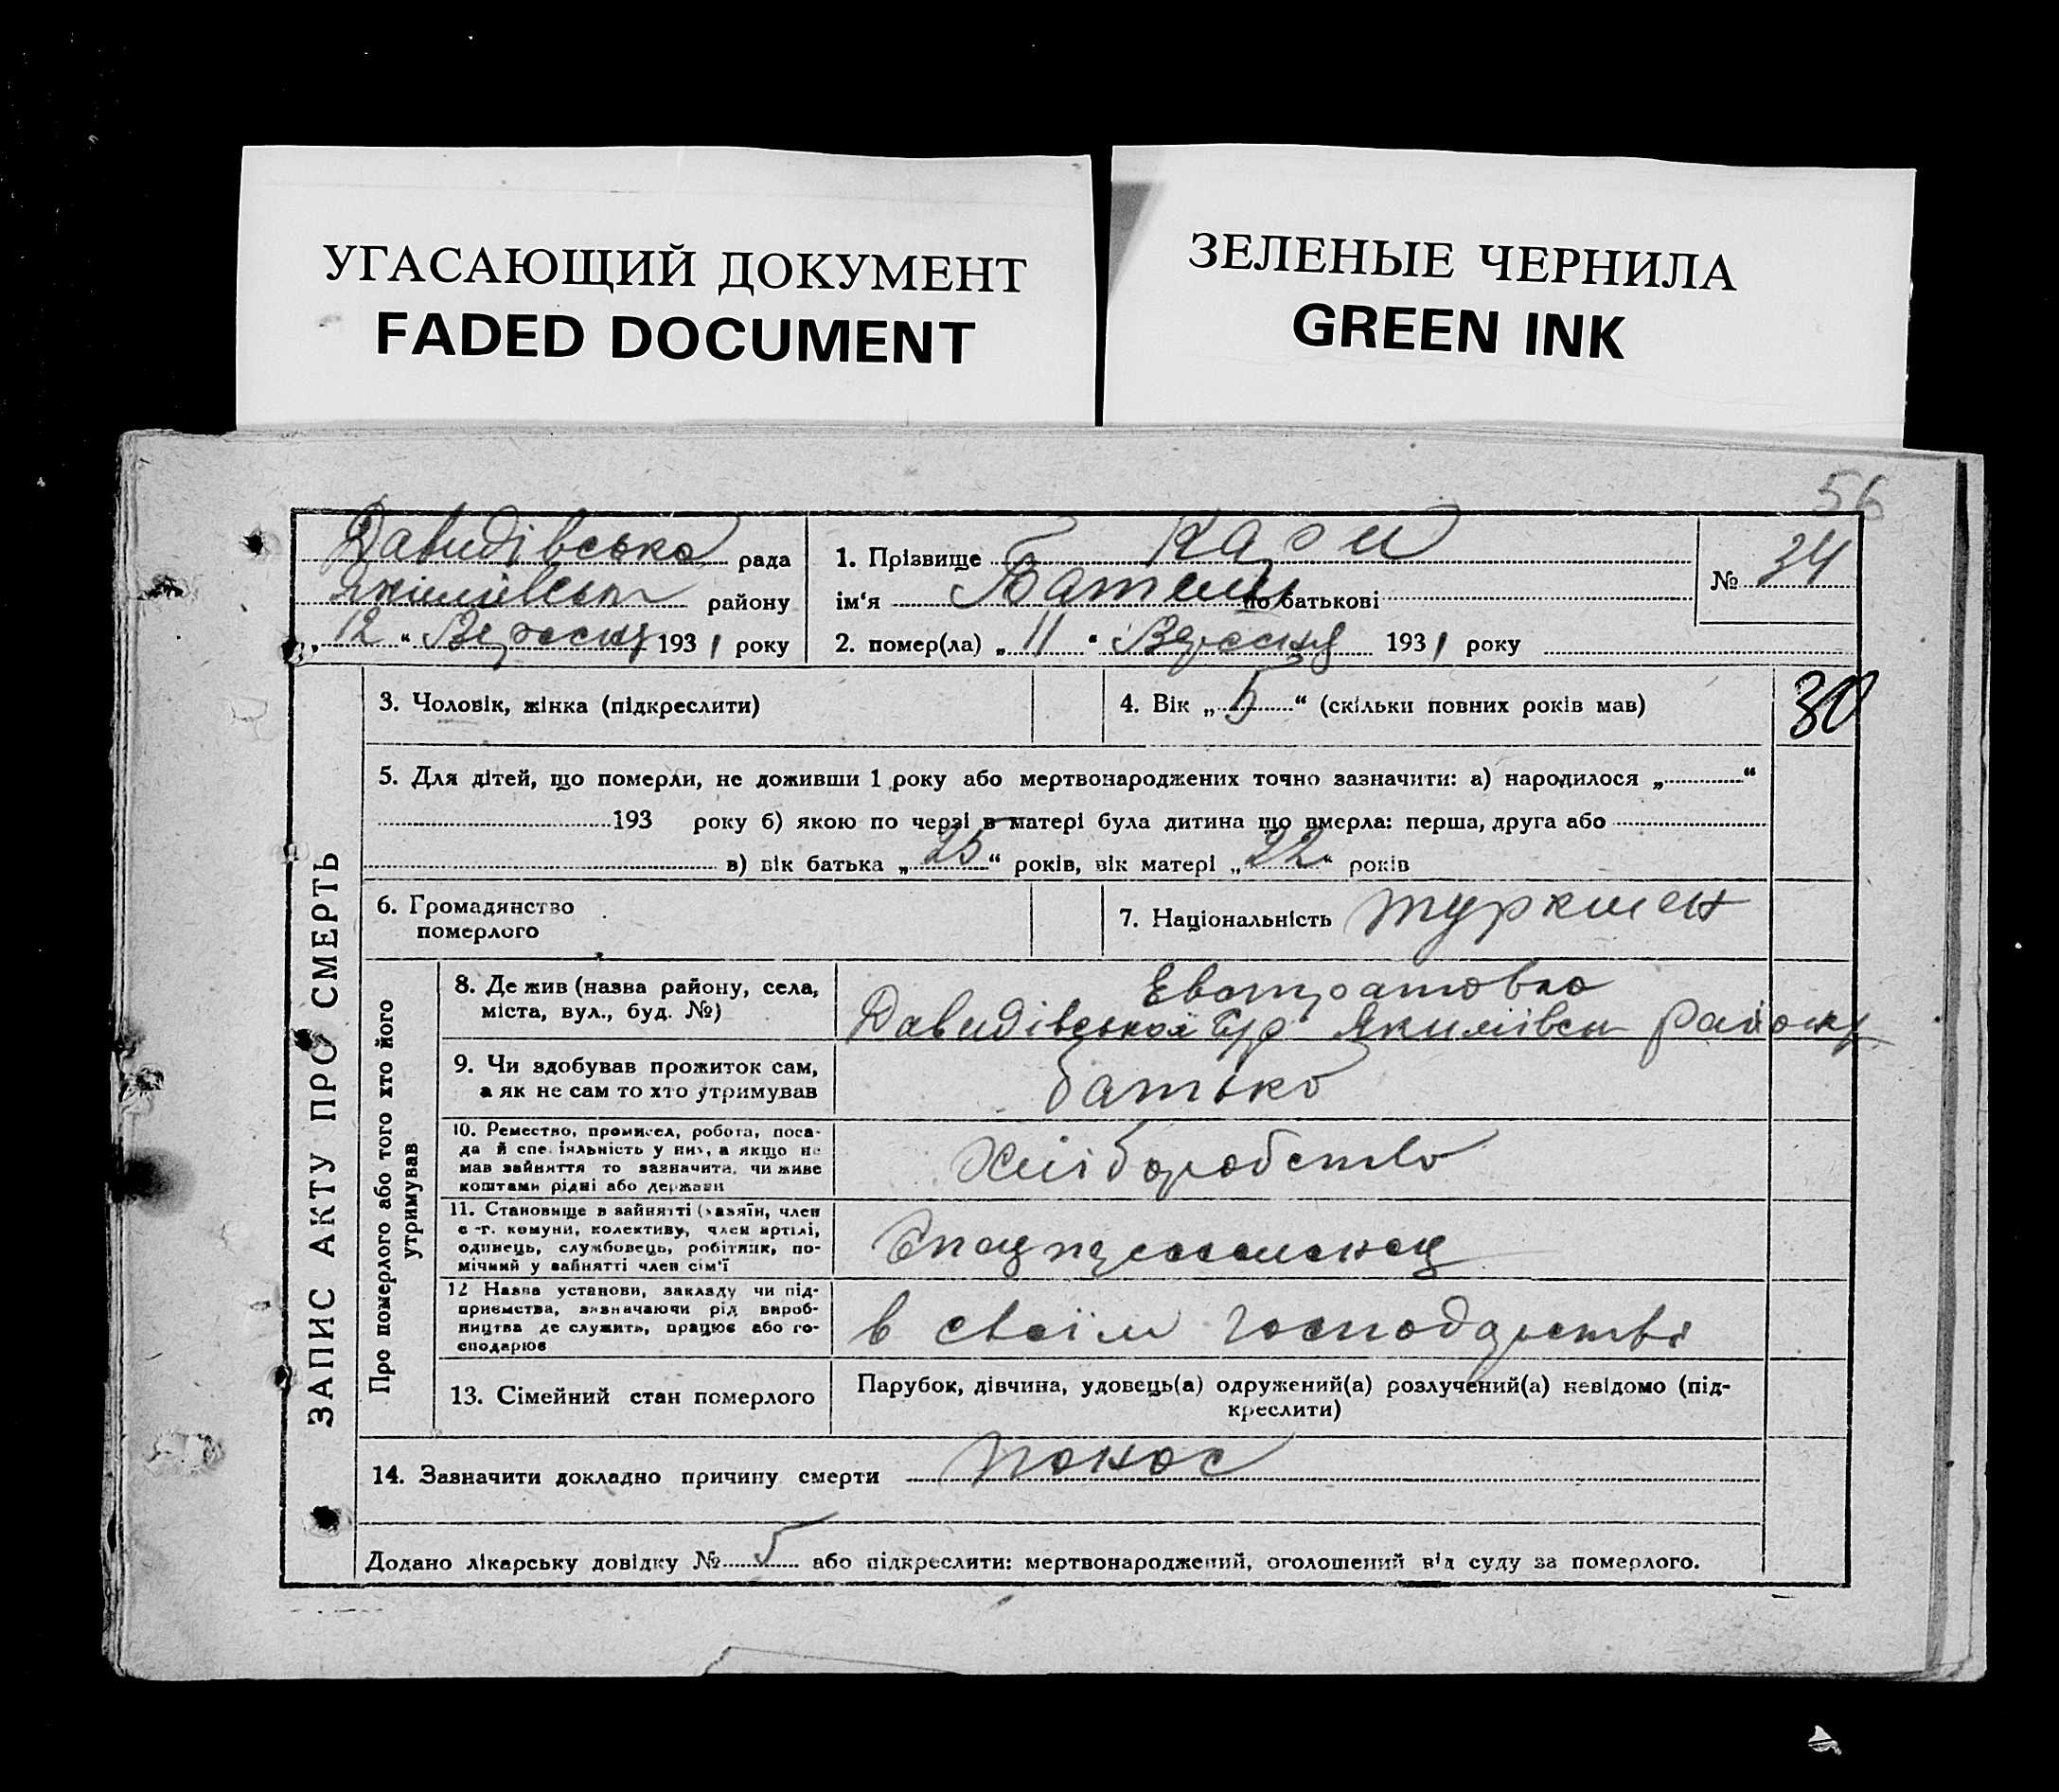 УГАСАЮЩИЙ ДОКУМЕНТ
FADED DOCUMENT
ЗЕЛЕНЫЕ ЧЕРНИЛА
GREEN INK
56
Давидівська рада
району
„12“ Вересня 1931 року
1. Прізвище
ім‘я по батькові
2. помер(ла) „11“ Вересня 1931 року
№ 34
3. Чоловік, жінка (підкреслити)
4. Вік „5“ (скільки повних років мав)
30
5. Для дітей, що померли, не доживши 1 року або мертвонароджених точно зазначити: а) народилося „ “
193 року б) якою по черзі в матері була дитина що вмерла: перша, друга або
в) вік батька „25“ років, вік матері „22“ років
6. Громадянство
померлого
7. Національність туркмен
ЗАПИС АКТУ ПРО СМЕРТЬ
Про померлого або того хто його
утримував
8. Де жив (назва району, села,
міста, вул., буд. №)
Давидівської с/р Якимівськ району
9. Чи здобував прожиток сам,
а як не сам то хто утримував
батько
10. Ремество, промисел, робота, поса-
да й спеціяльність у них, а якщо не
мав зайняття то зазначити, чи живе
коштами рідні або держави
Хліборобство
11. Становище в зайнятті (хазяїн, член
с-г. комуни, колективу, член артілі,
одинець, службовець, робітник, по-
мічний у зайнятті член сім'ї
12 Назва установи, закладу чи під-
приємства, зазначаючи рід вироб-
ництва де служить, працює або го-
сподарює
в своїм господарстві
13. Сімейний стан померлого
Парубок, дівчина, удовець(а) одружений(а) розлучений(а) невідомо (під-
креслити)
14. Зазначити докладно причину смерти понос
Додано лікарську довідку № 5 або підкреслити: мертвонароджений, оголошений від суду за померлого.